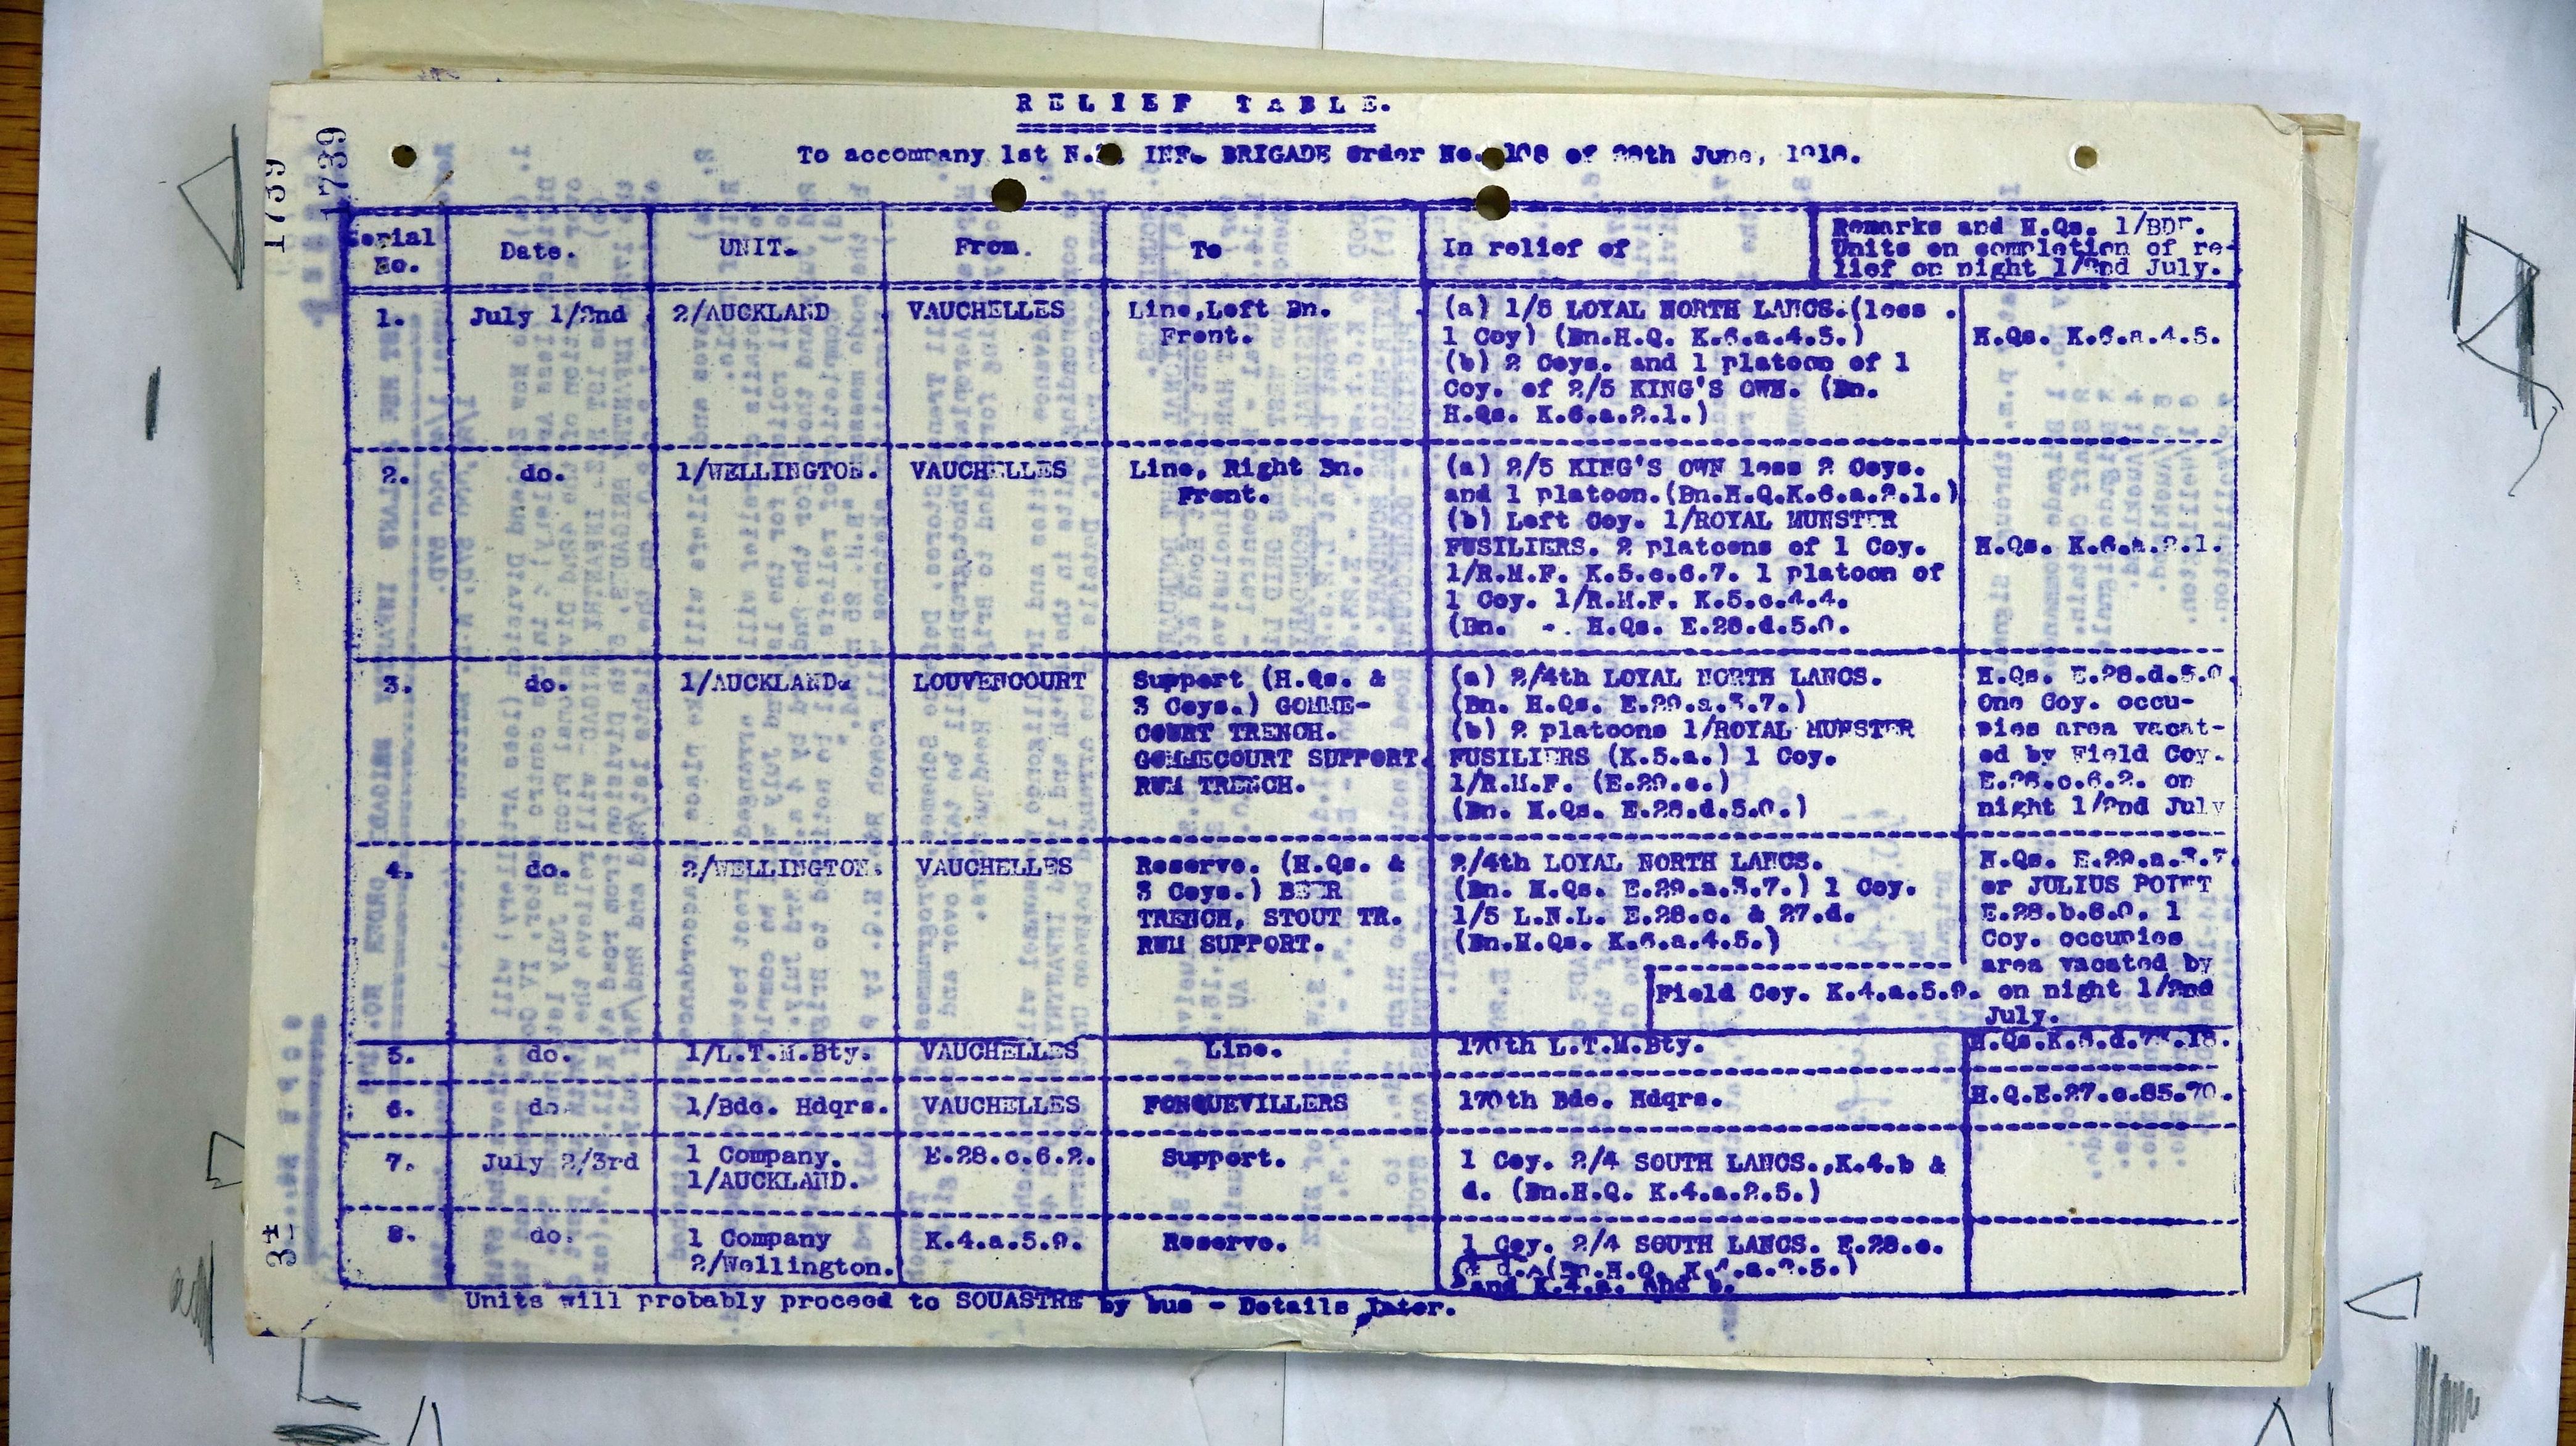 RELIEF TABLE.
To accompany 1st N.Z. INF. BRIGADE Order No. 108 of 28th June, 1918.
1739
1739
Serial No.
Date.
UNIT.
From.
To
In relief of
Remarks and H.Qs. 1/BDE.
Units on completion of re-
lief on night 1/2nd July.
1.
July 1/2nd
2/AUCKLAND
VAUCHELLES
Line,Left Bn.
Front.
(a) 1/5 LOYAL NORTH LANCS.(less
1 Coy) (Bn.H.Q. K.6.a.4.5.)
(b) 2 Coys. and 1 platoon of 1
Coy. of 2/5 KING'S OWN. (Bn.
H.Qs. K.6.a.2.1.)
H.Qs. K.6.a.4.5.
2.
do.
1/WELLINGTON.
VAUCHELLES
Line, Right Bn.
Front.
(a) 2/5 KING'S OWN less 2 Coys.
and 1 platoon.(Bn.H.Q.K.6.a.2.1.)
(b) Left Coy. 1/ROYAL MUNSTER
FUSILIERS. 2 platoons of 1 Coy.
1/R.M.F. K.5.c.6.7. 1 platoon of
1 Coy. 1/R.M.F. K.5.c.4.4.
(Bn. - . H.Qs. E.28.d.5.0.
H.Qs. K.6.a.2.1.
3.
do.
1/AUCKLAND.
LOUVENCOURT
Support (H.Qs. &
3 Coys.) GOMME-
COURT TRENCH.
GOMMECOURT SUPPORT.
RUM TRENCH.
(a) 2/4th LOYAL NORTH LANCS.
(Bn. H.Qs. E.29.a.3.7.)
(b) 2 platoons 1/ROYAL MUNSTER
FUSILIERS (K.5.a.) 1 Coy.
1/R.M.F. (E.29.c.)
(Bn. H.Qs. E.28.d.5.0.)
H.Qs. E.28.d.5.0.
One Coy. occu-
pies area vacat-
ed by Field Coy.
E.28.c.6.2. on
night 1/2nd July
4.
do.
2/WELLINGTON.
VAUCHELLES
Reserve. (H.Qs. &
3 Coys.) BEER
TRENCH, STOUT TR.
RUM SUPPORT.
2/4th LOYAL NORTH LANCS.
(Bn. H.Qs. E.29.a.3.7.) 1 Coy.
1/5 L.N.L. E.28.c. & 27.d.
(Bn.H.Qs. K.6.a.4.5.)
H.Qs. E.29.a.3.7.
or JULIUS POINT
E.28.b.8.0. 1
Coy. occupies
area vacated by
Field Coy. K.4.a.5.9. on night 1/2nd
July.
5.
do.
1/L.T.M.Bty.
VAUCHELLES
Line.
170th L.T.M.Bty.
6.
do.
1/Bde. Hdqrs.
VAUCHELLES
FONQUEVILLERS
170th Bde. Hdqrs.
H.Q.E.27.c.85.70.
7.
July 2/3rd
1 Company.
1/AUCKLAND.
E.28.c.6.2.
Support.
1 Coy. 2/4 SOUTH LANCS.,K.4.b &
d. (Bn.H.Q. K.4.a.2.5.)
8.
do.
1 Company
2/Wellington.
K.4.a.5.9.
Reserve.
1 Coy. 2/4 SOUTH LANCS. E.28.c.
& d. (Bn.H.Q.
and K.4.a. And b.
Units will probably proceed to SOUASTRE by bus - Details Later.